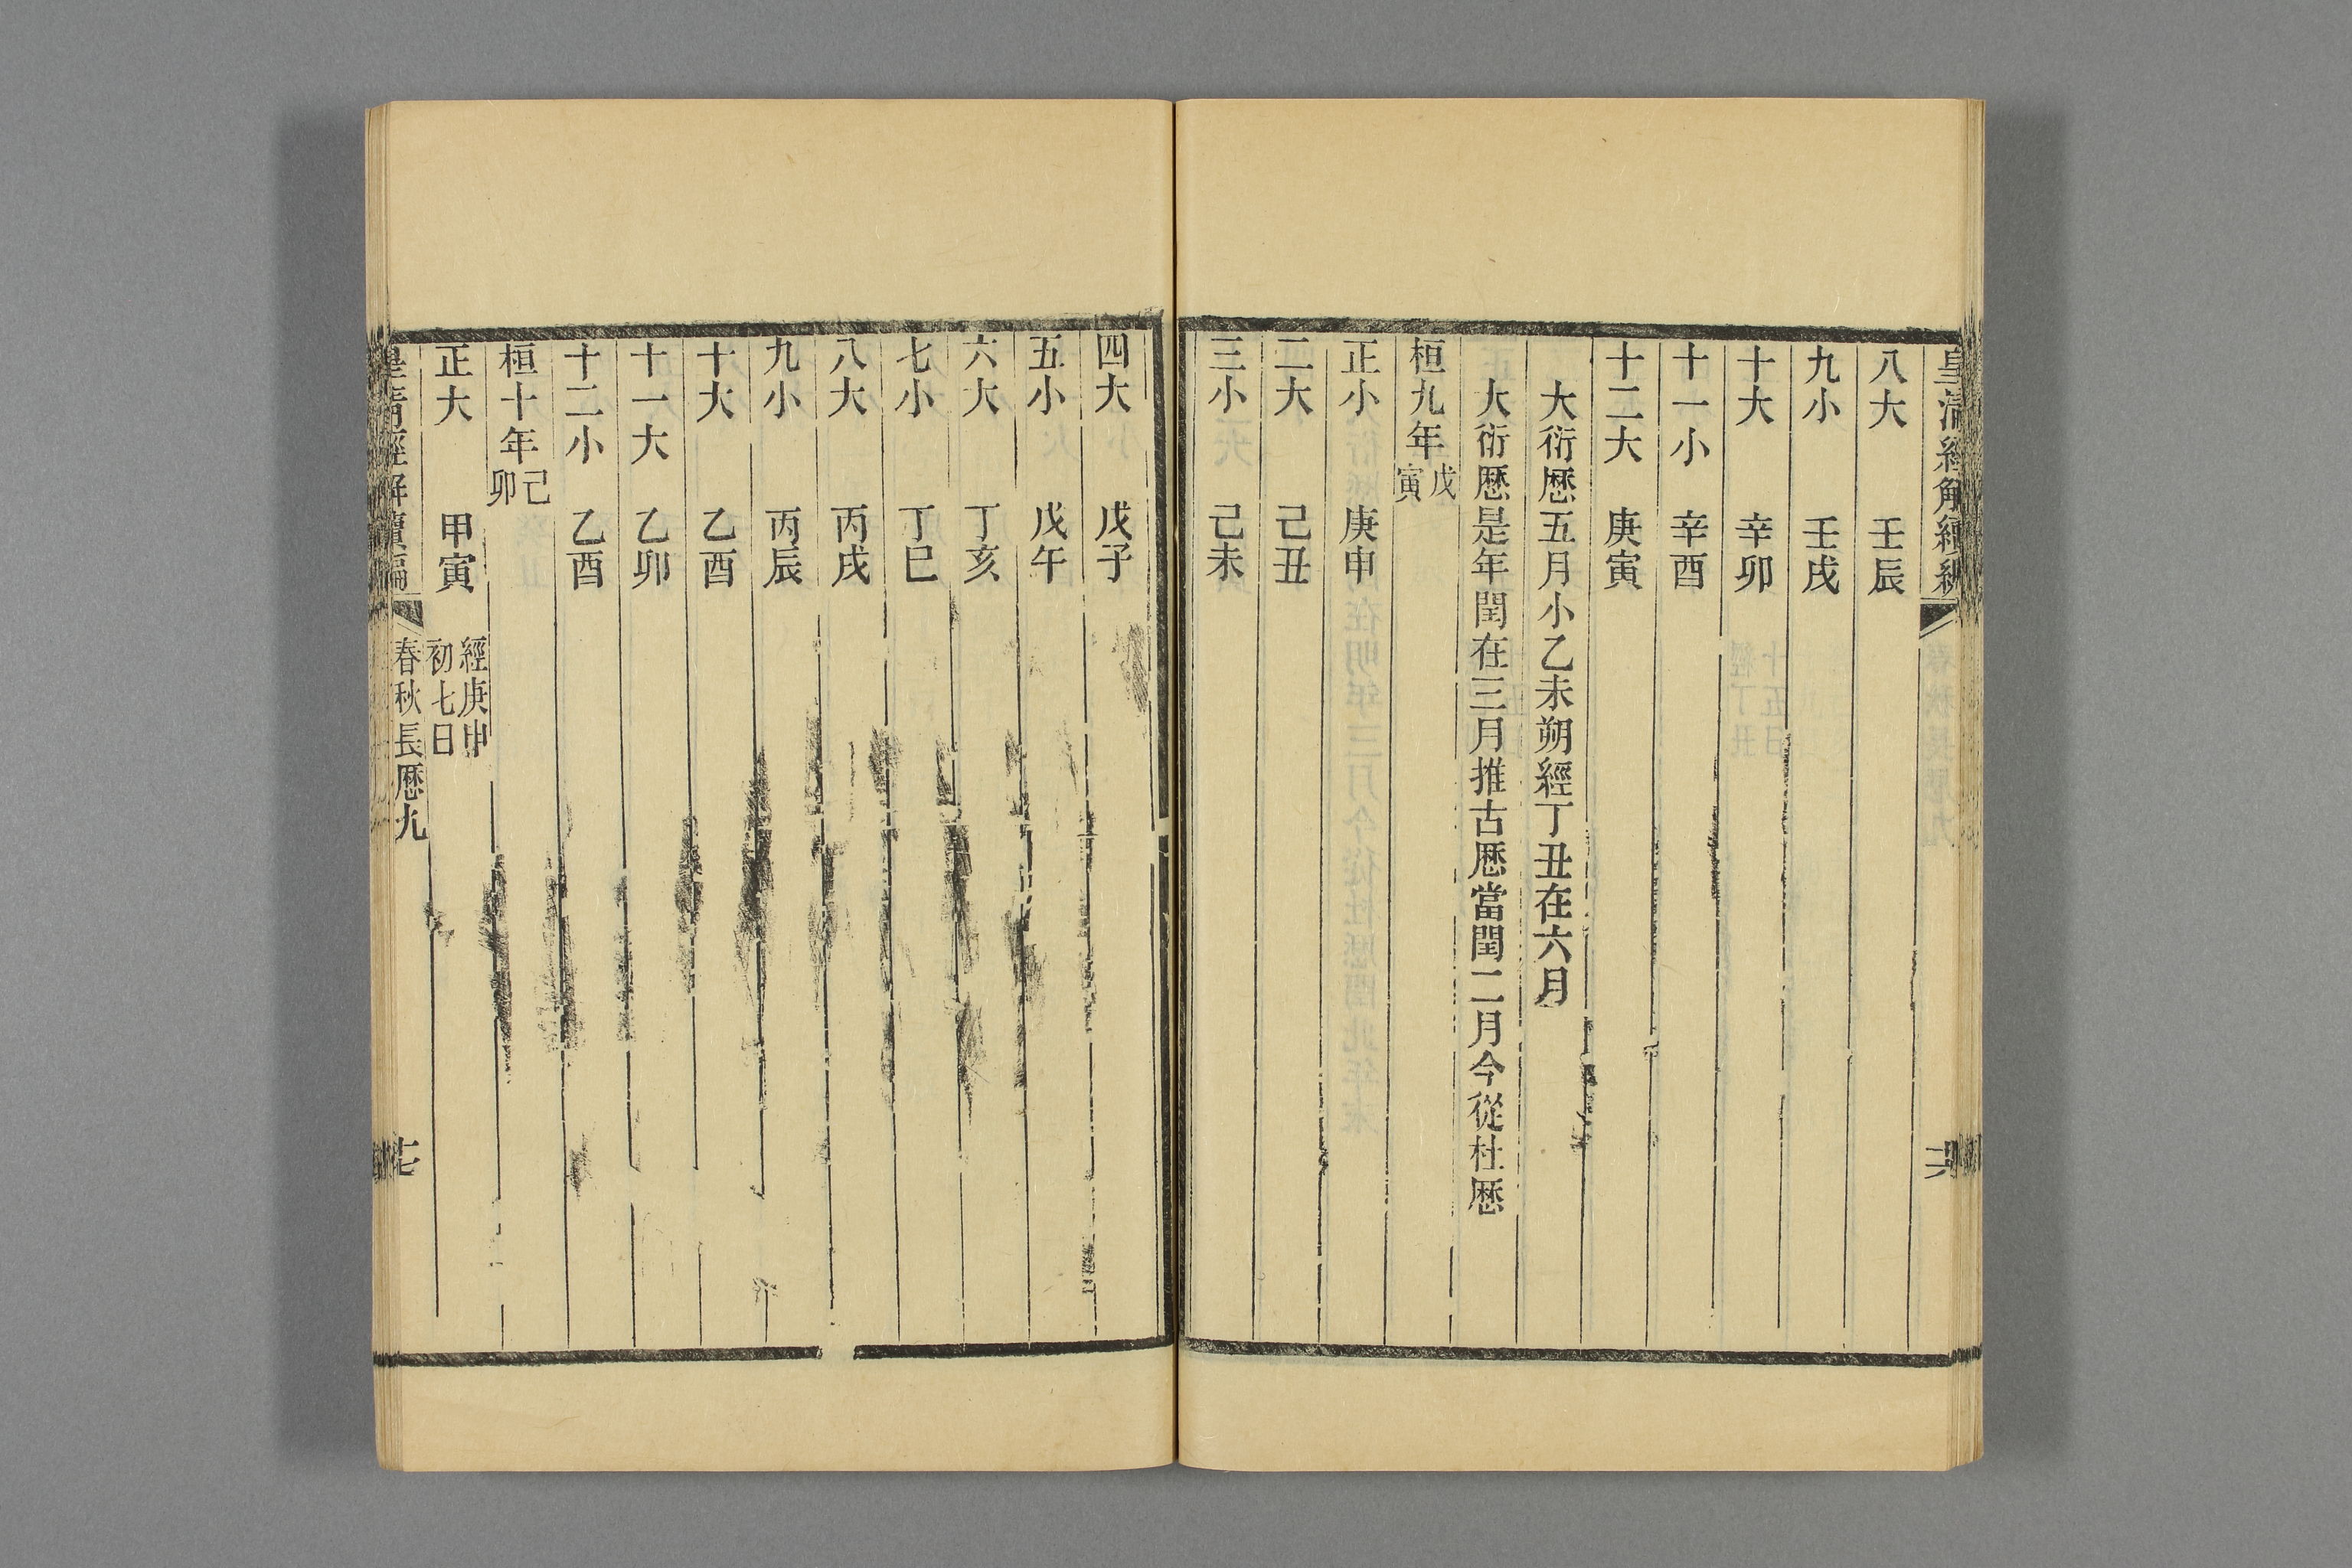 皇清經解續編
八大　壬辰
九小　壬戌
十大　辛卯
十一小　辛酉
十二大　庚寅
大衍厯五月小乙未朔經丁丑在六月
大衍厯是年閏在三月推古厯當閏二月今從杜厯
桓九年戊寅
正小　庚申
二大　己丑
三小　己未
四大　戊子
五小　戊午
六大　丁亥
七小　丁巳
八大　丙戌
九小　丙辰
十大　乙酉
十一大　乙卯
十二小　乙酉
桓十年己卯
正大　甲寅　經庚申初七日
皇清經解續編　春秋長厯九　七